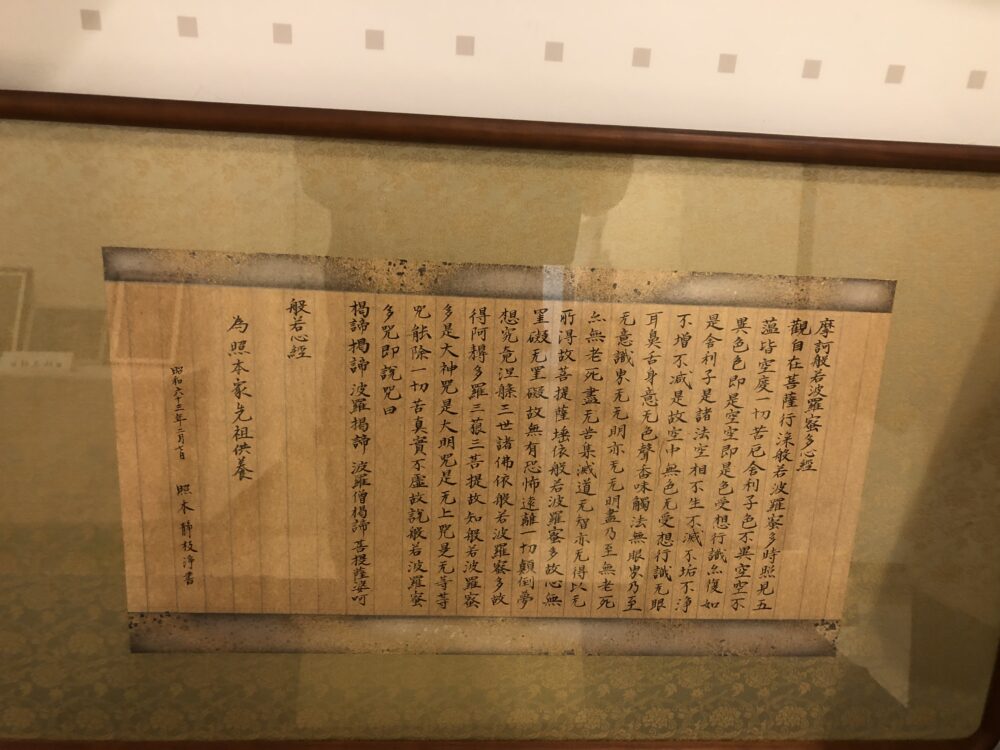 摩訶般若波羅蜜多心經
觀自在菩薩行深般若波羅蜜多時照見五
蘊皆空度一切苦厄舍利子色不異空空不
異色色即是空空即是色受想行識亦復如
是舍利子是諸法空相不生不滅不垢不淨
不增不減是故空中無色无受想行識无眼
耳鼻舌身意无色聲香味觸法無眼界乃至
无意識界无无明亦无无明盡乃至無老死
亦無老死盡无苦集滅道无智亦无得以无
所得故菩提薩埵依般若波羅蜜多故心無
罣礙无罣礙故無有恐怖遠離一切顛倒夢
想究竟涅槃三世諸佛依般若波羅蜜多故
得阿耨多羅三藐三菩提故知般若波羅蜜
多是大神咒是大明咒是无上咒是无等等
咒能除一切苦真實不虛故說般若波羅蜜
多咒即說咒曰
揭諦揭諦 波羅揭諦 波羅僧揭諦 菩提薩婆呵
般若心經
為照本家先祖供養
昭和六十三年二月七日 照本静枝淨書